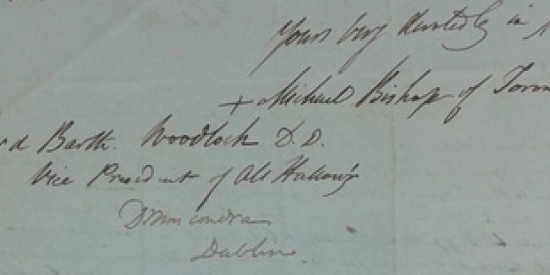 Yours very devotedly in
+ Michael Bishop of Toron
d Barth. Woodlock D.D.
Vice President of All Hallows
Drumcondra
Dublin.